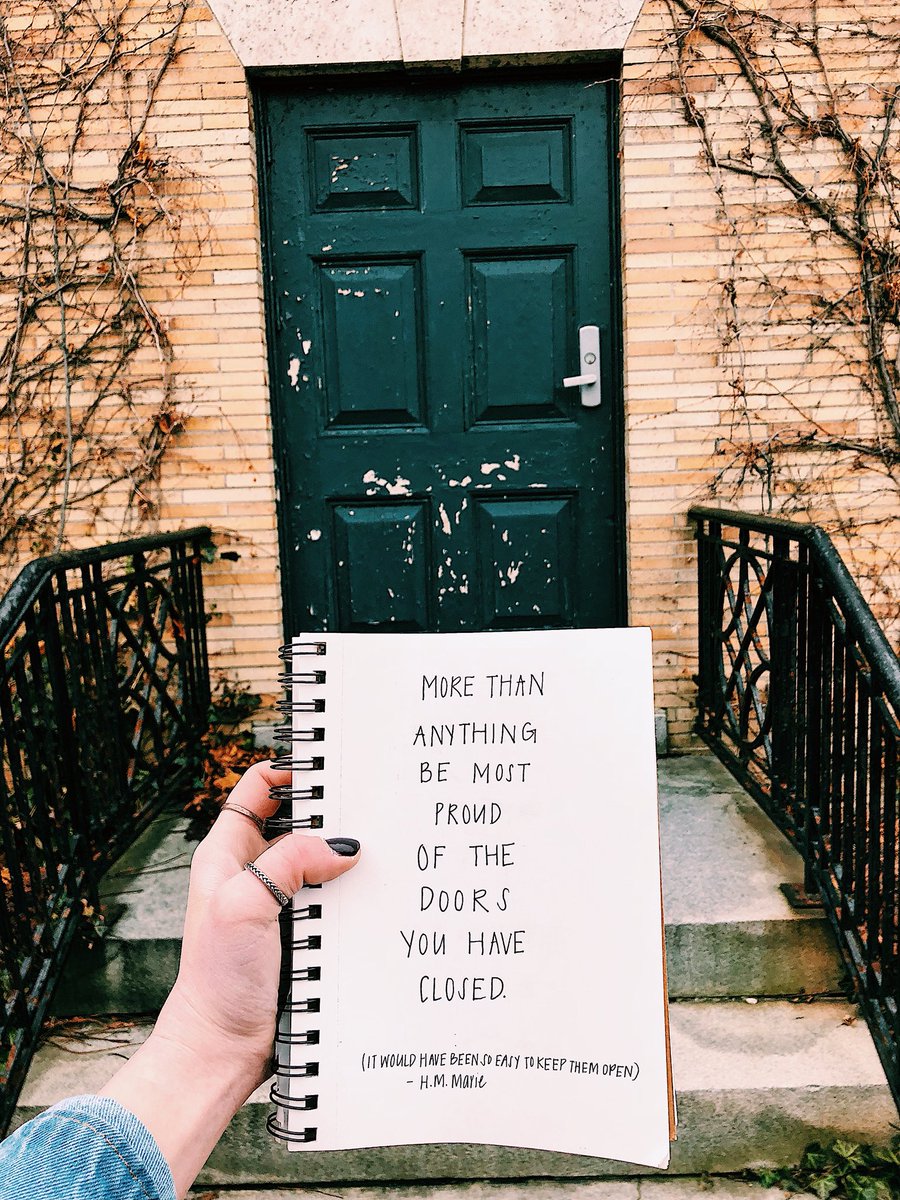 MORE THAN
ANYTHING
BE MOST
PROUD
OF THE
DOORS
YOU HAVE
CLOSED.
(IT WOULD HAVE BEEN SO EASY TO KEEP THEM OPEN)
- H.M. Marie